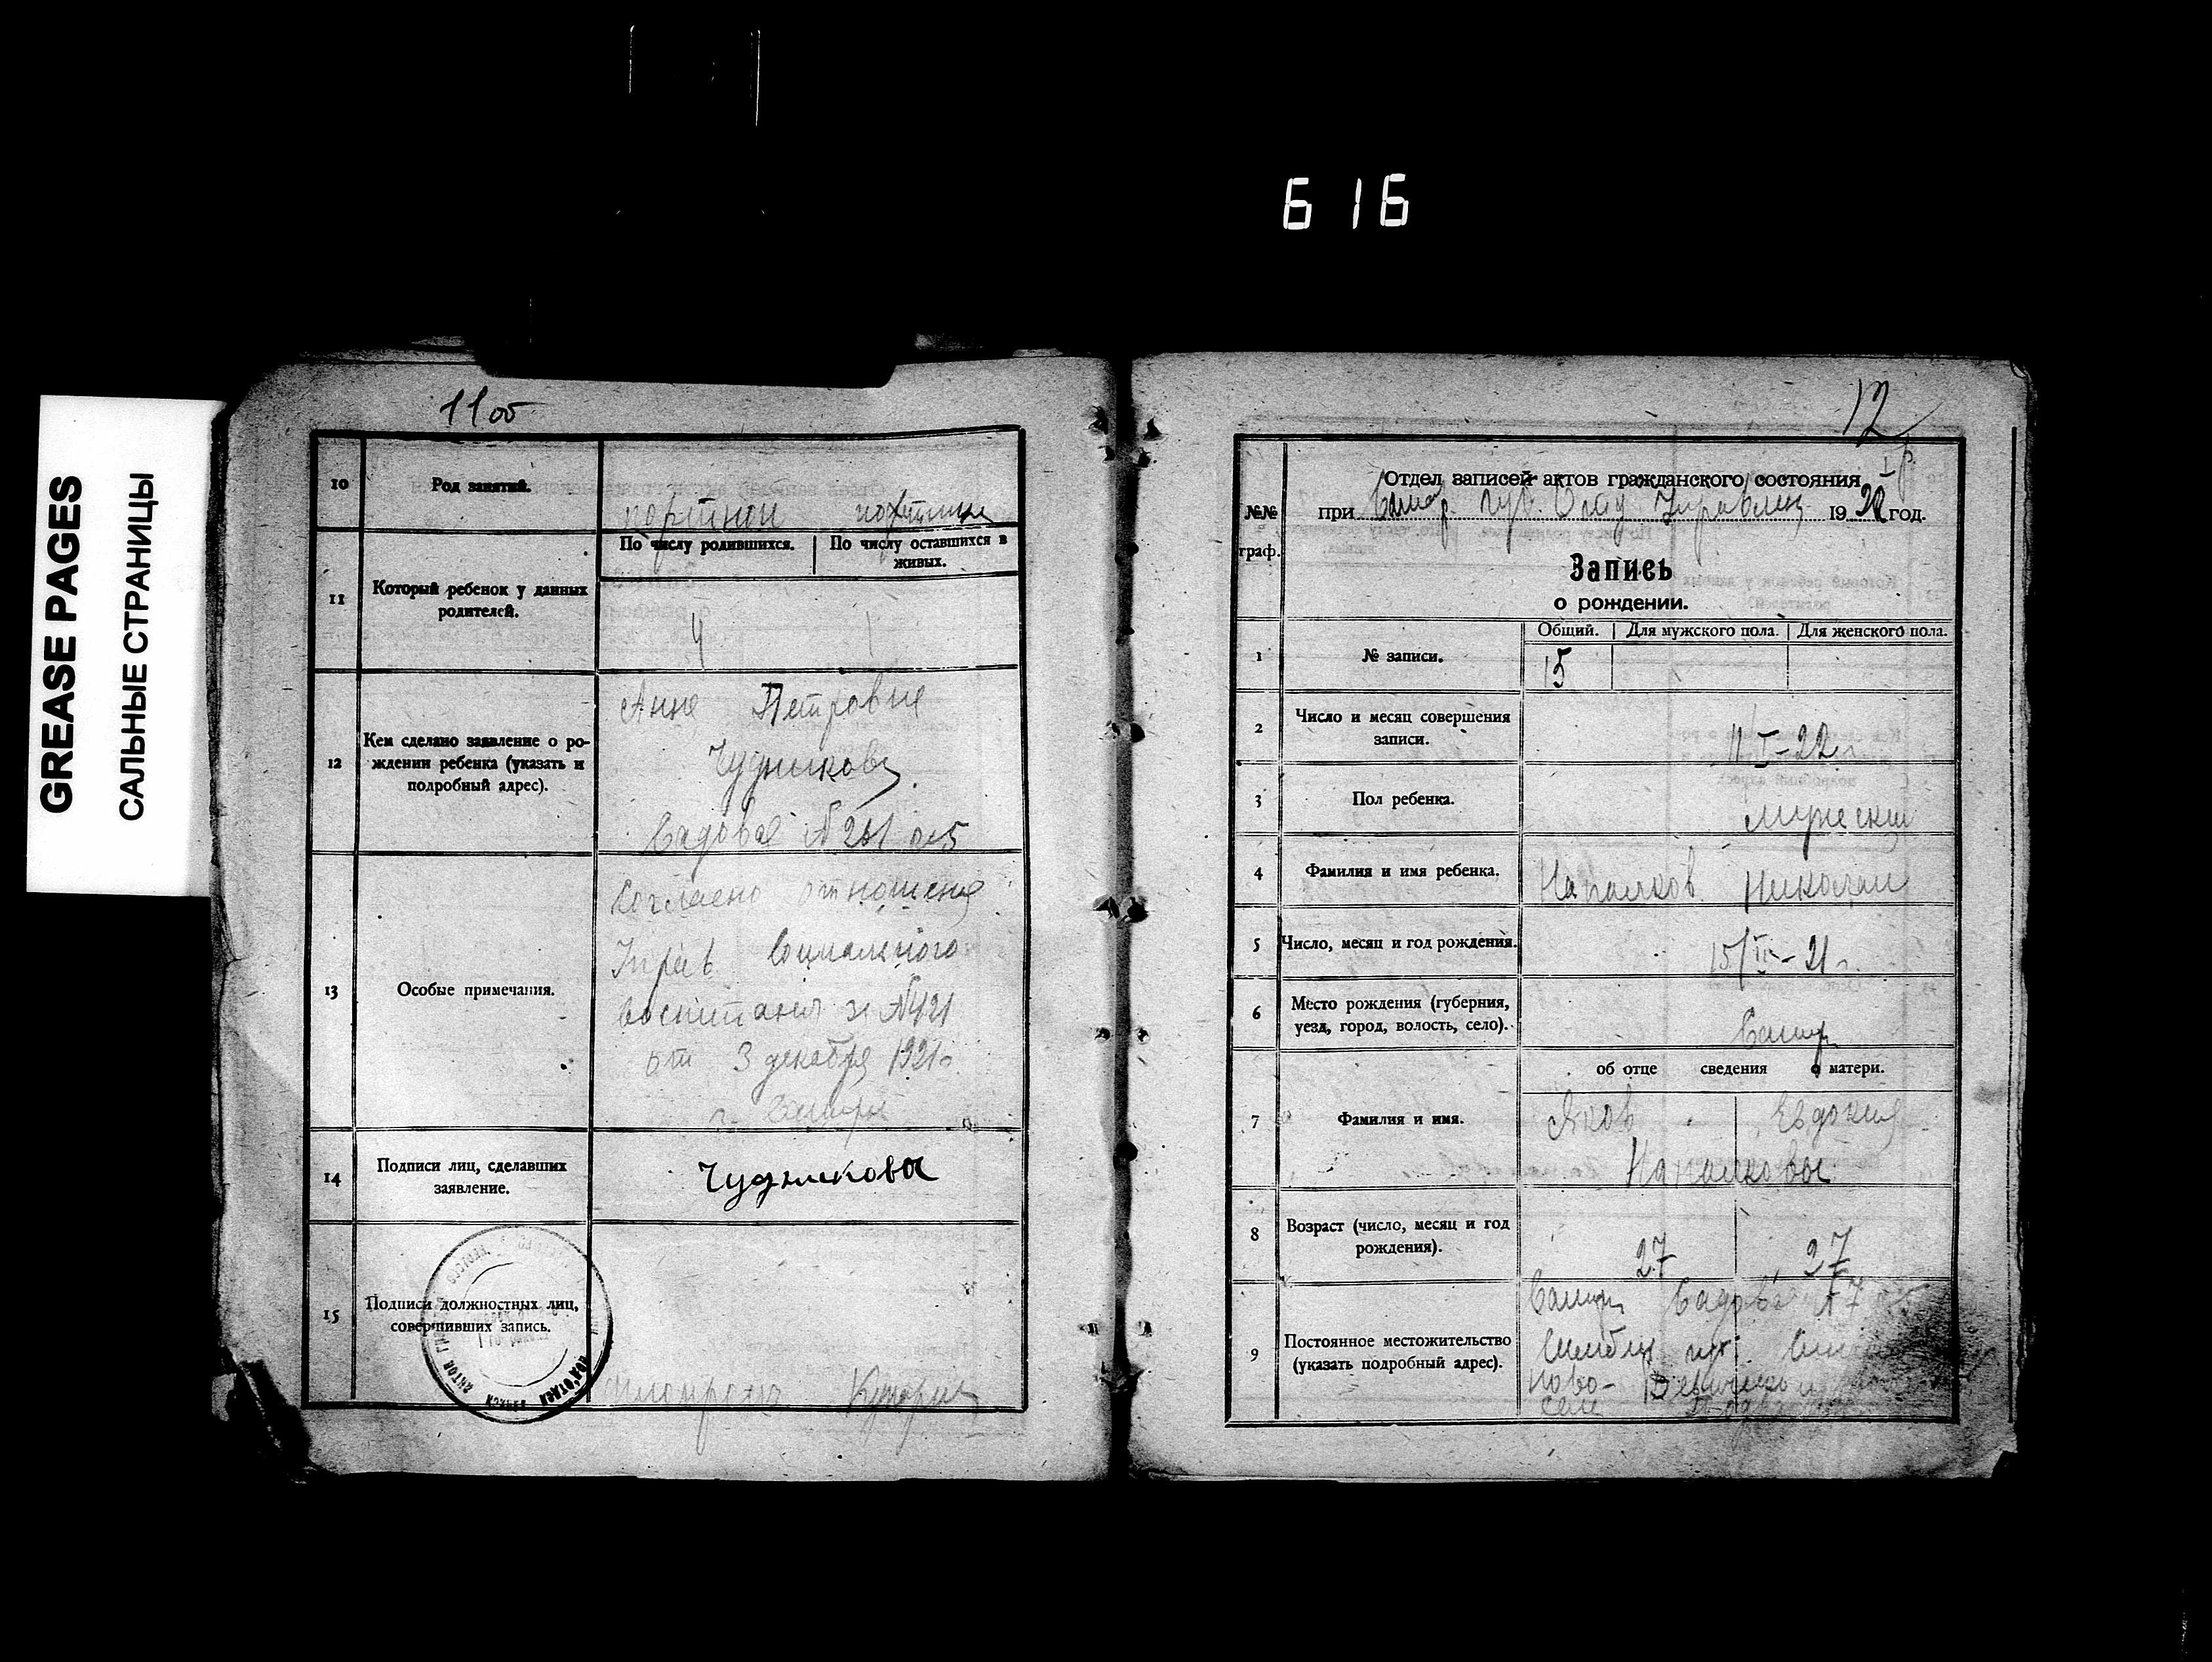 616
GREASE PAGES
САЛЬНЫЕ СТРАНИЦЫ
11об
10 Род занятий. портной
11 Который ребенок у данных родителей.
По числу родившихся. По числу оставшихся в живых.
4 1
12 Кем сделано заявление о рождении ребенка (указать и подробный адрес).
Анне Петровне
Чудниковы
Садовая № 261
13 Особые примечания.
Согласно отношения
Управ Социального
воспитания за № 421
от 3 декабря 1921г.
г. Самары
14 Подписи лиц, сделавших заявление.
Чудникова
15 Подписи должностных лиц, совершивших запись.
12
Отдел записей актов гражданского состояния
I р.
№№ граф.
при Самар. Губ. Отд Управлен 1922 год.
Запись
о рождении.
Общий. Для мужского пола. Для женского пола.
1 № записи. 15
2 Число и месяц совершения записи. 11-I-22г.
3 Пол ребенка. мужески
4 Фамилия и имя ребенка. Напалков Николай
5 Число, месяц и год рождения. 15/II-21г.
6 Место рождения (губерния, уезд, город, волость, село). Самар
об отце сведения о матери.
7 Фамилия и имя. Яков Евдокия
Напалковы
8 Возраст (число, месяц и год рождения). 27 27
9 Постоянное местожительство (указать подробный адрес).
Самар Садовая № 7
Ново-Девичьего
селе